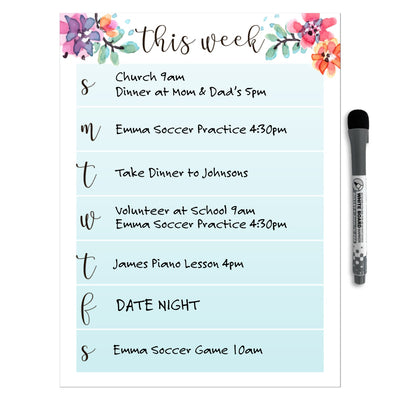 this week
s
Church 9am
Dinner at Mom & Dad's 5pm
m
Emma Soccer Practice 4:30pm
t
Take Dinner to Johnsons
w
Volunteer at School 9am
Emma Soccer Practice 4:30pm
t
James Piano Lesson 4pm
f
DATE NIGHT
s
Emma Soccer Game 10am
WHITE BOARD